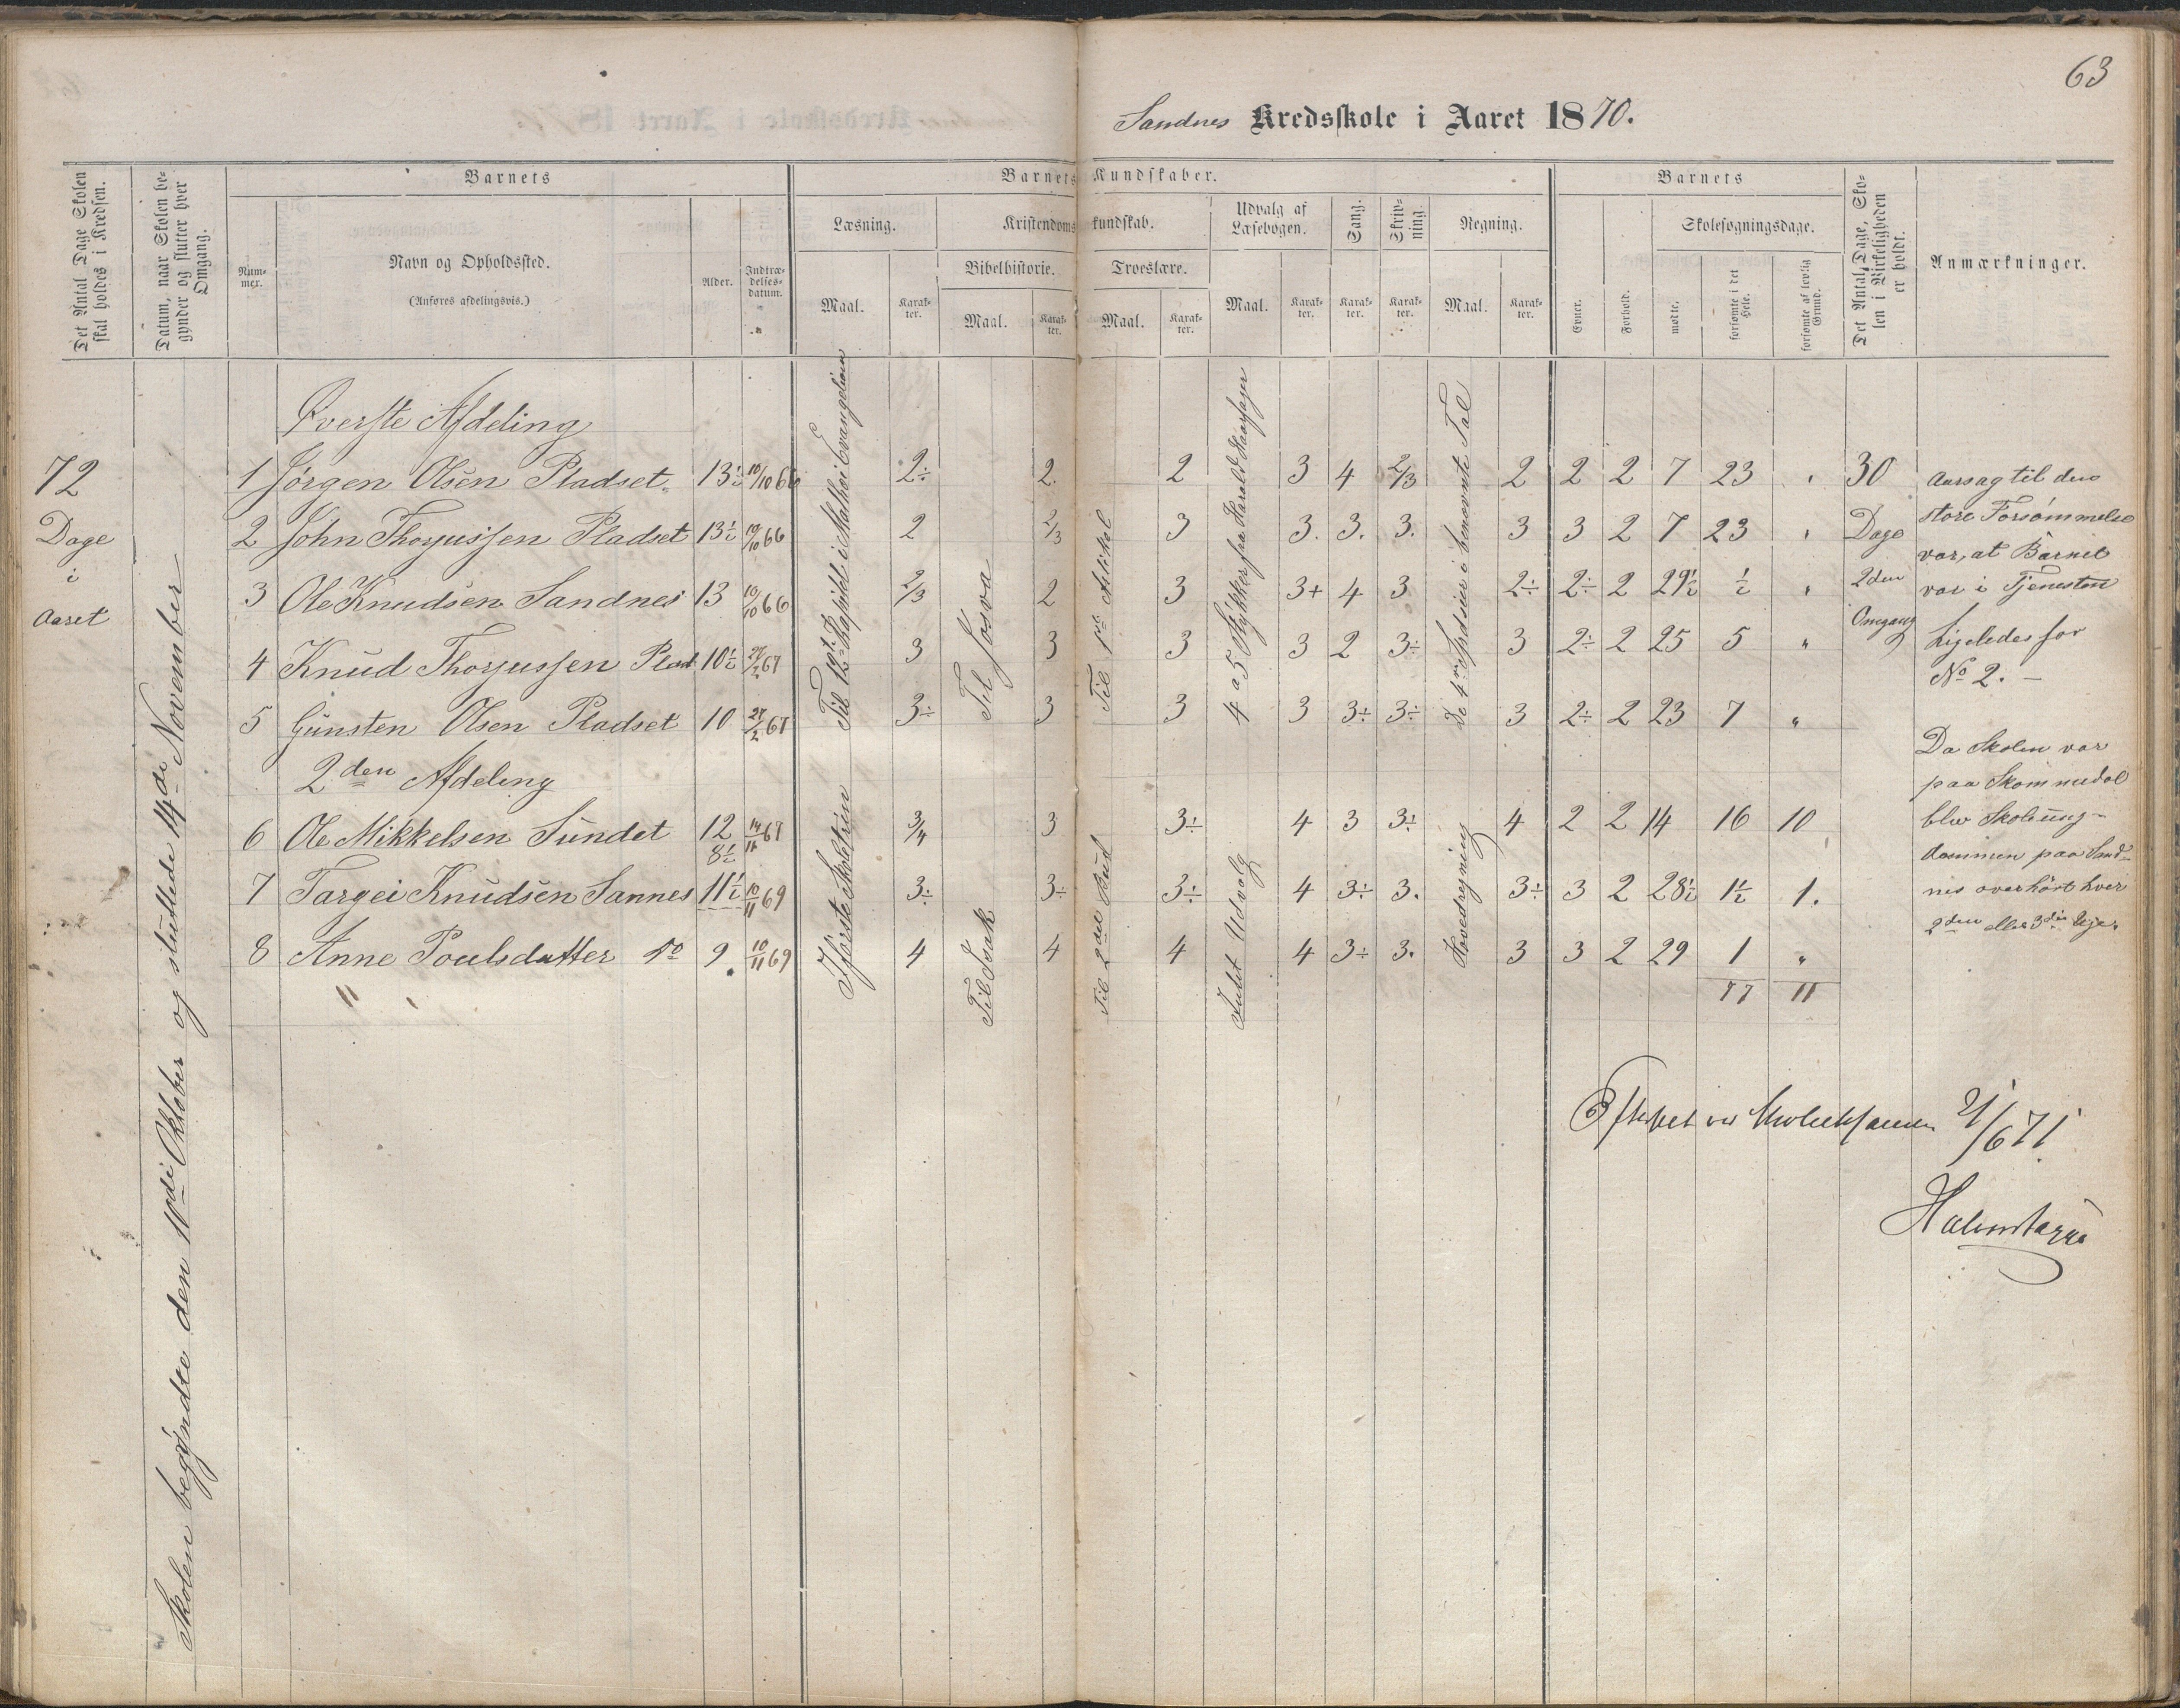 63
Sandnes Kredsskole i Aaret 1870.
Det Antal Dage Skolen skal holdes i Kredsen.
Datum, naar Skolen begynder og slutter hver Omgang.
Barnets
Nummer.
Navn og Opholdssted.
(Anføres afdelingsvis.)
Alder.
Indtrædelsesdatum.
Barnets Kundskaber.
Læsning.
Maal.
Karakter.
Kristendomskundskab.
Bibelhistorie.
Maal.
Karakter.
Troeslære.
Maal.
Karakter.
Udvalg af Læsebogen.
Maal.
Karakter.
Sang.
Karakter.
Skrivning
Karakter.
Regning.
Maal.
Karakter.
Barnets
Evner.
Forhold.
Skolesøgningsdage.
mødte.
forsømte i det Hele.
forsømte af lovlig Grund.
Det Antal Dage, Skolen i Virkeligheden er holdt.
Anmærkninger.
72
Dage
i
Aaret
Skolen begyndte den 10de Oktober og sluttede 14de November
Øverste Afdeling
1 Jørgen Olsen Pladset. 13½ 10/10 66 2÷ 2. 2 3 4 2/3 2 2 2 7 23 "
2 John Thorjussen Pladset 13½ 10/10 66 2 2/3 3 3. 3. 3. 3 3 2 7 23 "
3 Ole Knudsen Sandnes 13 10/10 66 2/3 2 3 3+ 4 3 2÷ 2÷ 2 29½ ½ "
4 Knud Thorjussen Plad 10½ 27/2 67 3 3 3 3 2 3÷ 3 2÷ 2 25 5 "
5 Gunsten Olsen Pladset 10 27/2 67 3÷ 3 3 3 3÷ 3÷ 3 2÷ 2 23 7 "
2den Afdeling
6 Ole Mikkelsen Sundet 12 14/11 67 3/4 3 3÷ 4 3 3÷ 4 2 2 14 16 10
8½
7 Targei Knudsen Sannes 11½ 10/11 69 3÷ 3÷ 3÷ 4 3÷ 3. 3÷ 3 2 28½ 1½ 1.
8 Anne Poulsdatter do 9 10/11 69 4 4 4 4 3÷ 3. 3 3 2 29 1 "
77 11
Til 12te Kapitel i Mathæi Evangelium
Til Josva
Til 1ste Artikel
4 a 5 Stykker fra Harald Haarfager
De 4re Spesier i benævnte Tal
I første Skoletrin
Til Isak
Til 2det Bud
Intet Udvalg
Hovedregning
30
Dage
2den
Omgang
Aarsag til den
store Forsømmelse
var, at Barnet
var i Tjenesten
Ligeledes for
No 2. –
Da Skolen var
paa Skommedal
blev Skoleung-
dommen paa Sand-
nes overhørt hver
2den eller 3die Uge.
2/6 71